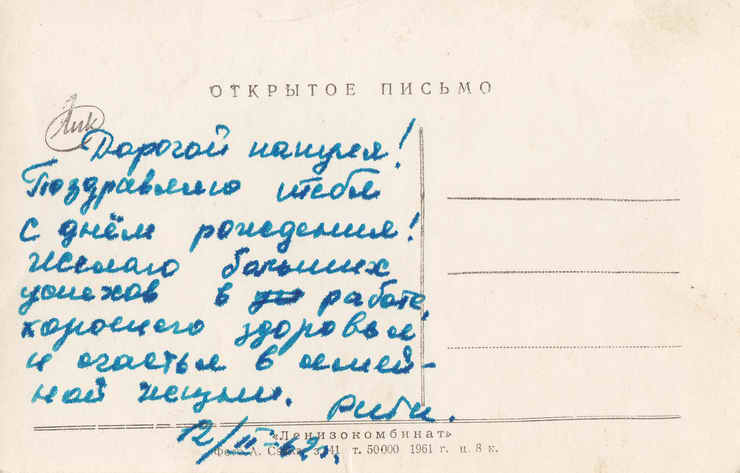 ОТКРЫТОЕ ПИСЬМО
Лик
Дорогой папуля!
Поздравляю тебя
с днём рождения!
Желаю больших
успехов в работе,
хорошего здоровья
и счастья в семей-
ной жизни.
12/II-62г.
«Ленизокомбинат»
Фото А. з. 41 т. 50000 1961 г. ц. 8 к.